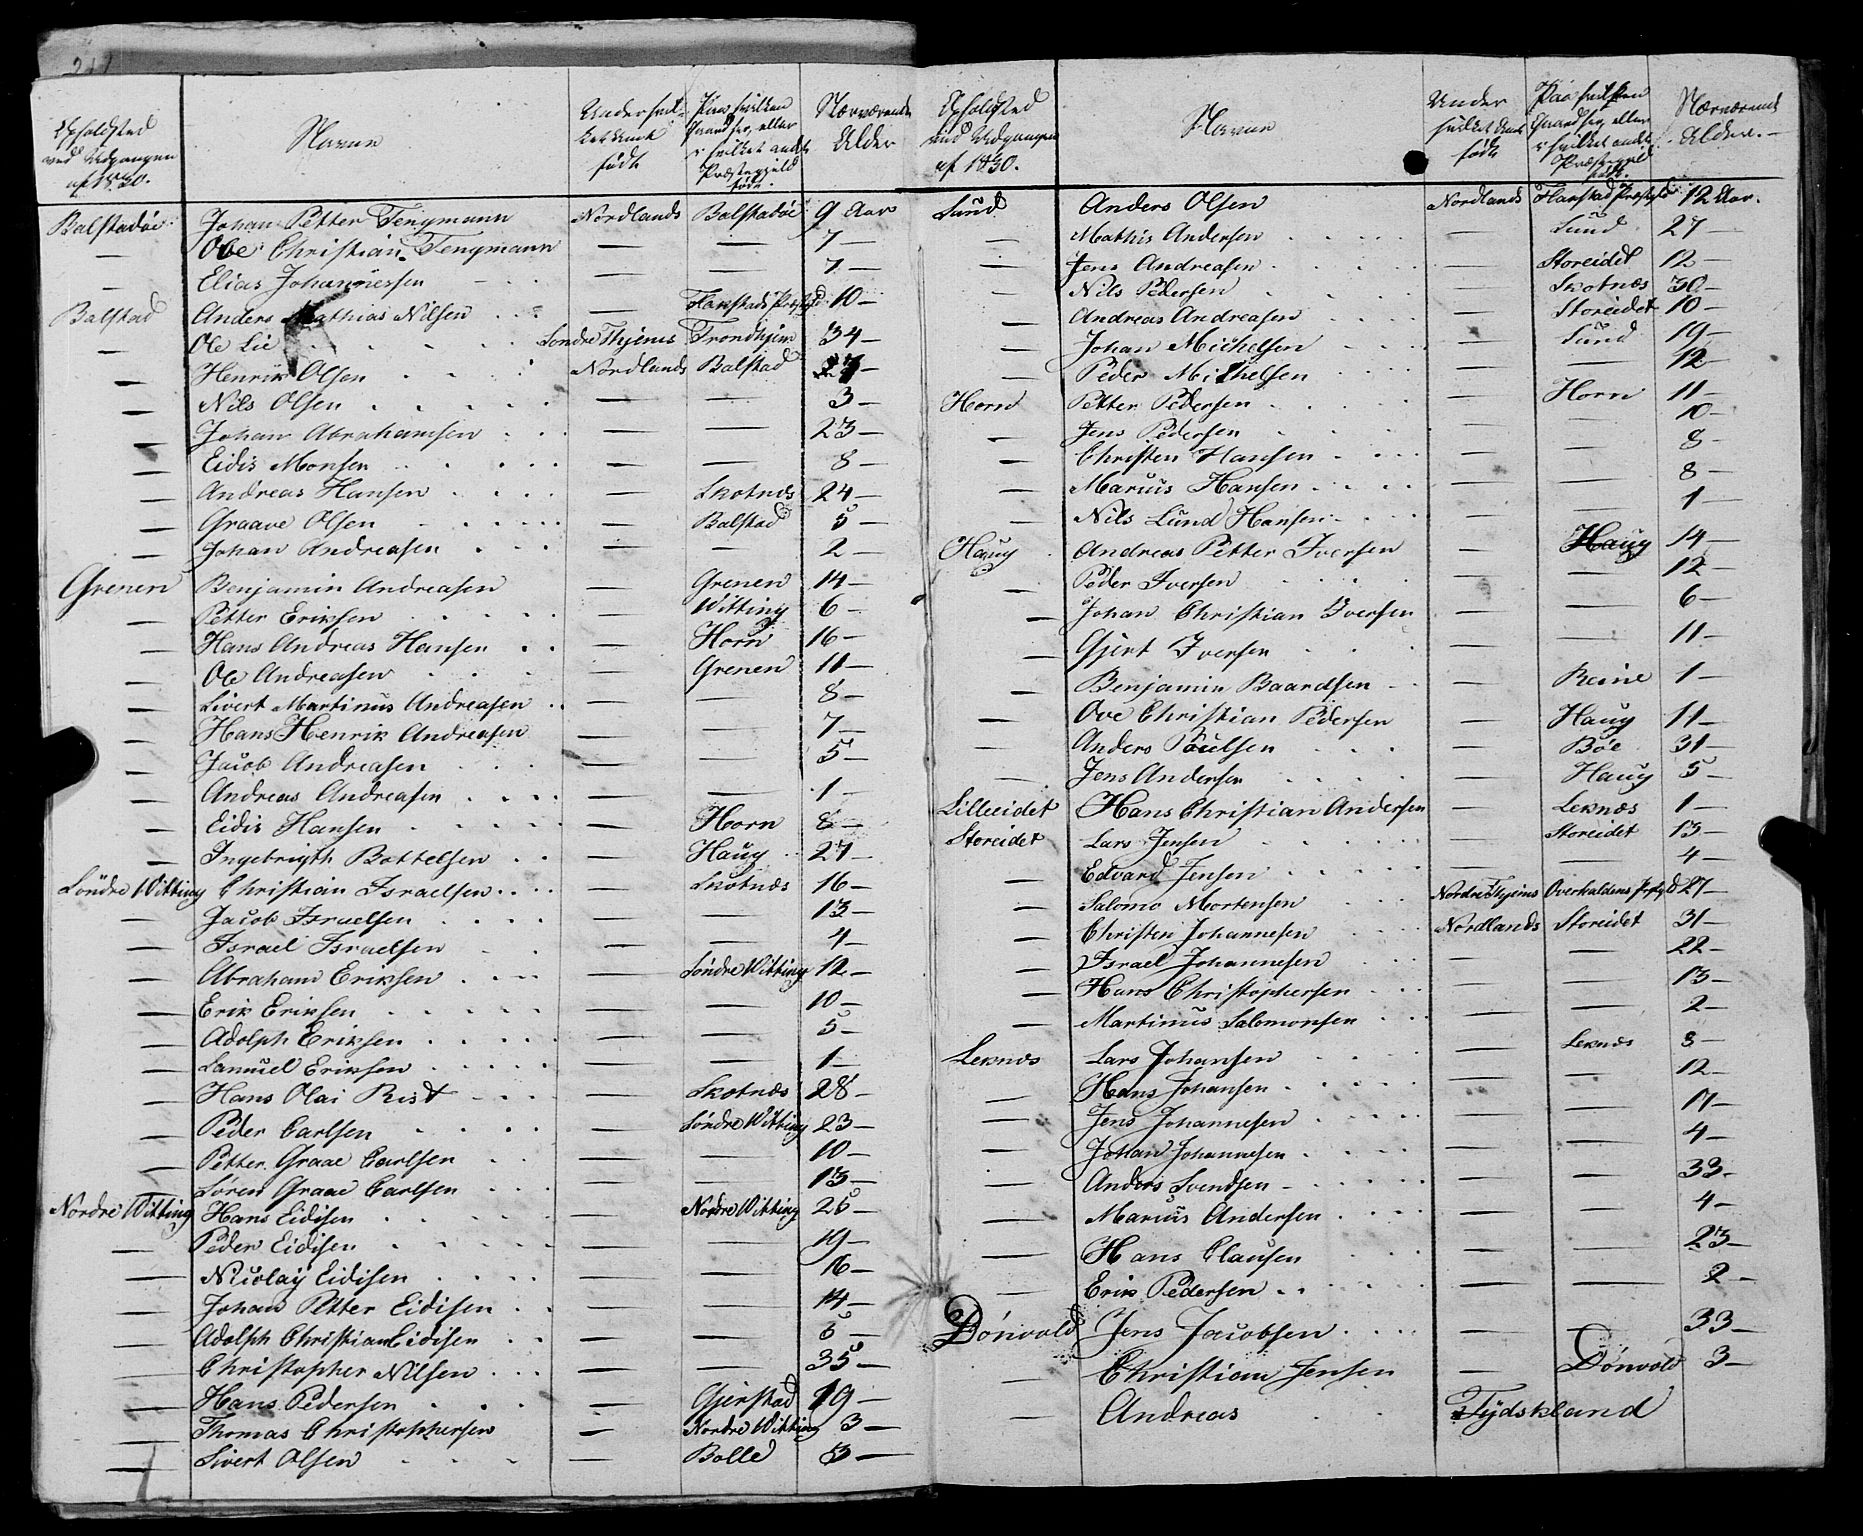 Opholdsted ved Udgangen af 1830.
Navne
Under hvilket Amt født
Paa hvilken Gaard sig, eller i hvilket andet Præstegjeld født.
Nærværende Alder
Balstadøe Johan Petter Tengmann Nordlands Balstadøe 9 Aar
— Ole Christian Tengmann — — 7 —
— Elias Johannessen — — 7 —
Balstad Anders Mathias Nilsen — Flakstads Præstgd 10 —
— Ole Lie Søndre Thjems Trondhjem 34 —
— Henrik Olsen Nordlands Balstad —
— Nils Olsen — — 3 —
— Johan Abrahamsen — — 23 —
— Eidis Monsen — — 8 —
— Andreas Hansen — Skotnæs 24 —
— Graave Olsen — Balstad 5 —
— Johan Andreasen — — 2 —
Grenen Benjamin Andreasen — Grenen 14 —
— Petter Eriksen — Witting 6 —
— Hans Andreas Hansen — Horn 16 —
— Ole Andreasen — Grenen 11 —
— Sivert Martinus Andreasen — — 8 —
— Hans Henrik Andreasen — — 7 —
— Jacob Andreasen — — 5 —
— Andreas Andreasen — — 1 —
— Eidis Hansen — Horn 8 —
— Ingebrigth Bottelsen — Haug 27 —
Søndre Witting Christian Israelsen — Skotnæs 16 —
— Jacob Israelsen — — 13 —
— Israel Israelsen — — 4 —
— Abraham Eriksen — Søndre Witting 12 —
— Erik Eriksen — — 10 —
— Adolph Eriksen — — 5 —
— Samuel Eriksen — — 1 —
— Hans Olai Rist — Skotnæs 28 —
— Peder Carlsen — Søndre Witting 23 —
— Petter Graae Carlsen — — 10 —
— Søren Graae Carlsen — — 13 —
Nordre Witting Hans Eidisen — Nordre Witting 25 —
— Peder Eidisen — — 19 —
— Nicolay Eidisen — — 16 —
— Johan Petter Eidisen — — 14 —
— Adolph Christian Eidisen — — 5 —
— Christopher Nilsen — — 35 —
— Hans Pedersen — Gjerstad 19 —
— Thomas Christophersen — Nordre Witting 3 —
— Sivert Olsen — Bolle 3 —
Opholdsted ved Udgangen af 1830.
Navne
Under hvilket Amt født
Paa hvilken Gaard sig, eller i hvilket andet Præstegield født.
Nærværende Alder. —
Lund Anders Olsen Nordlands Flakstad Præstgld 12 Aar.
— Mathis Andersen — Lund 27 —
— Jens Andreasen — Storeidet 12 —
— Nils Pedersen — Skotnæs 30 —
— Andreas Andreasen — Storeidet 10 —
— Johan Michelsen — Lund 19 —
— Peder Michelsen — — 12 —
Horn Petter Pedersen — Horn 11 —
— Jens Pedersen — — 10 —
— Christen Hansen — — 8 —
— Marius Hansen — — 8 —
— Nils Lund Hansen — — 1 —
Haug Andreas Petter Iversen — Haug 14 —
— Peder Iversen — — 12 —
— Johan Christian Iversen — — 6 —
— Gjert Iversen — — 11 —
— Benjamin Baardsen — Reine 1 —
— Ove Christian Pedersen — Haug 11 —
— Anders Poulsen — Bøe 31 —
— Jens Andersen — Haug 5 —
Lilleeidet Hans Christian Andersen — Leknæs 1 —
Storeidet Lars Jensen — Storeidet 13 —
— Edvard Jensen — — 4 —
— Salomo Mortensen Nordre Thjems Overhaldens Prstgld 27 —
— Christen Johannesen Nordlands Storeidet 31 —
— Israel Johannesen — — 22 —
— Hans Christophersen — — 13 —
— Martinus Salomonsen — — 2 —
Leknæs Lars Johansen — Leknæs 8 —
— Hans Johansen — — 12 —
— Jens Johannesen — — 11 —
— Johan Johannesen — — 4 —
— Anders Svendsen — — 33 —
— Marius Andersen — — 4 —
— Hans Clausen — — 23 —
— Erik Pedersen — — 2 —
Dønvold Jens Jacobsen — — 33 —
— Christian Jensen — Dønvold 3 —
— Andreas Tydskland